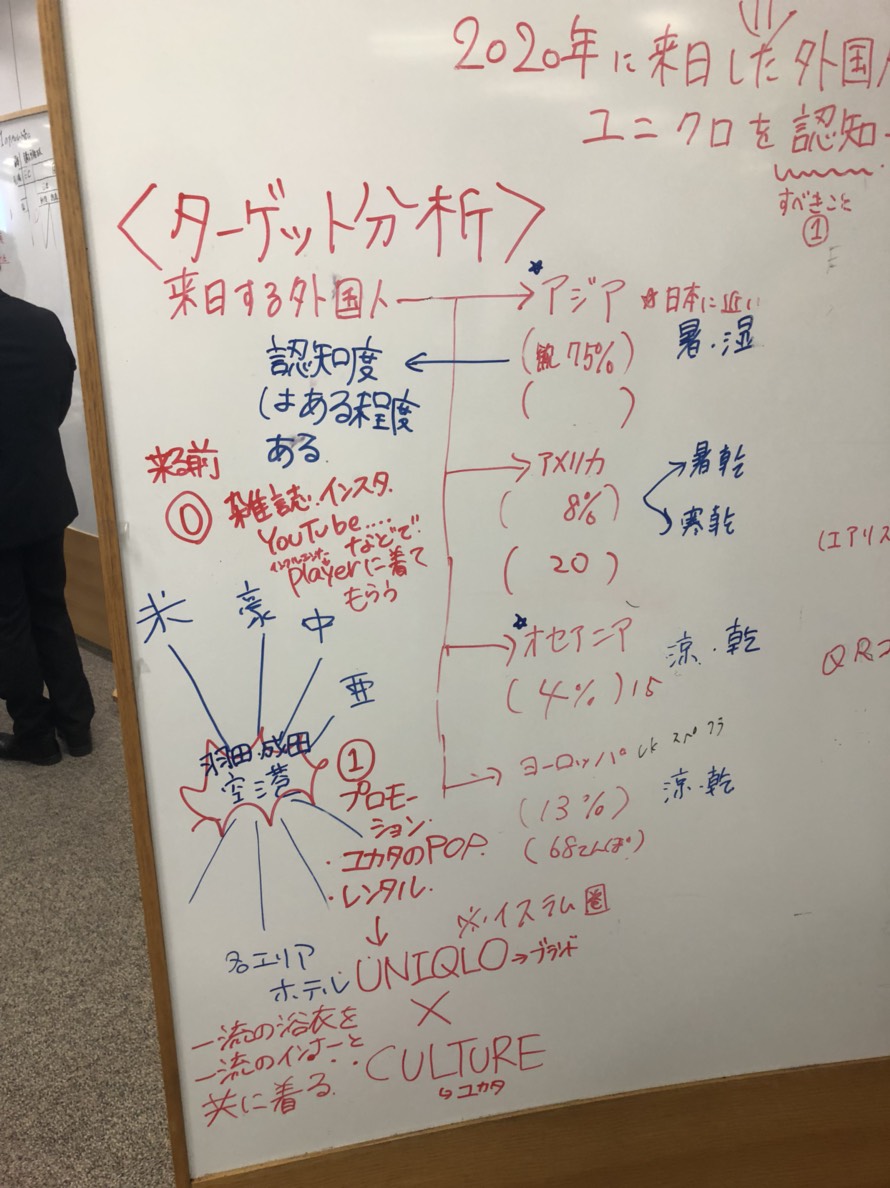 2020年に来日した外国人
ユニクロを認知
すべきこと
①
〈ターゲット分析〉
来日する外国人
アジア ☆日本に近い
(約75%) 暑・湿
( )
認知度
はある程度
ある
アメリカ
(8%)
(20)
暑乾
寒乾
来る前
⓪ 雑誌・インスタ.
YouTube....
などで
インフルエンサー
playerに着て
もらう
オセアニア 涼・乾
(4%) 15
ヨーロッパ UK スペ フラ
(13%) 涼・乾
(68てんぽ)
米 豪 中 亜
羽田・成田
空港
① プロモー
ション
・ユカタのPOP.
・レンタル.
↓
※・イスラム圏
各エリア
ホテル
UNIQLO→ブランド
×
CULTURE
↳ユカタ
一流の浴衣を
一流のインナーと
共に着る.
(エアリズ
QRコ